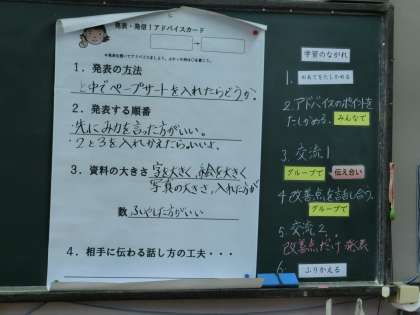 発表・発信!アドバイスカード
1.発表の方法
と中でペープサートを入れたらどうか。
2.発表する順番
先にみ力を言った方がいい。
・2と3を入れかえたらいいよ。
3.資料の大きさ 字を大きく,絵を大きく
写真の大きさ,入れた方が
数 ふやした方がいい
4.相手に伝わる話し方の工夫・・・
学習のながれ
1. めあてをたしかめる
2.アドバイスのポイントを
たしかめる。 みんなで
3.交流1
グループで 伝え合い
4 改善点を話し合う。
グループで
5.交流2..
改善点だけ発表
6. ふりかえる